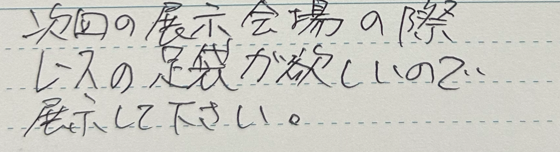 次回の展示会場の際
レースの足袋が欲しいので
展示して下さい。